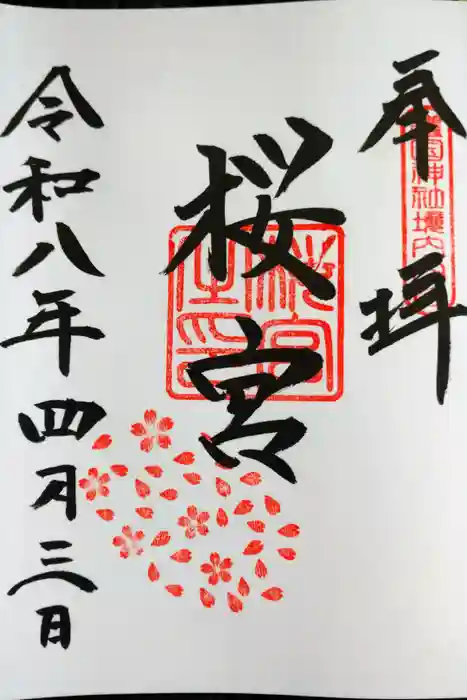 奉拝
護国神社境内
桜宮
桜宮之印
令和八年四月三日